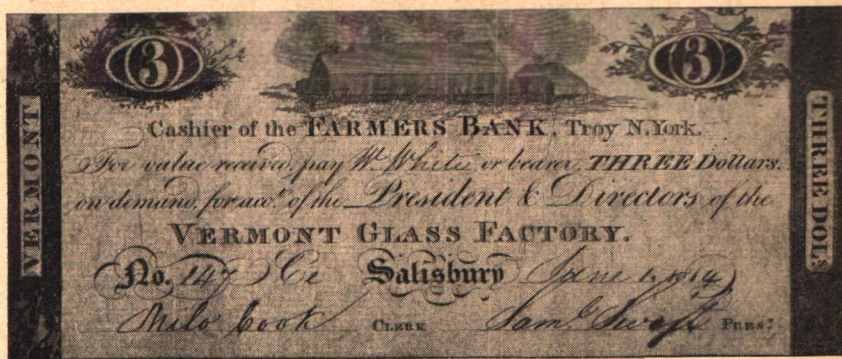 3 3
VERMONT
Cashier of the FARMERS BANK, Troy N.York.
For value received, pay W. White or bearer, THREE Dollars.
on demand, for acco.t of the President & Directors of the
VERMONT GLASS FACTORY.
No. 147 Salisbury June 1, 1814
Milo Cook CLERK Sam.l Swift PRES.T
THREE DOL.S